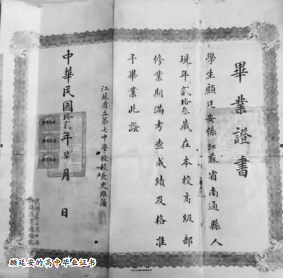 畢業證書
學生顧廷安係江蘇省南通縣人
現年貳拾叁歲在本校高級部
修業期滿考查成績及格准
予畢業此證
江蘇省立第七中學校校長史維藩
中華民國拾貳年 月 日
顾廷安的高中毕业证书